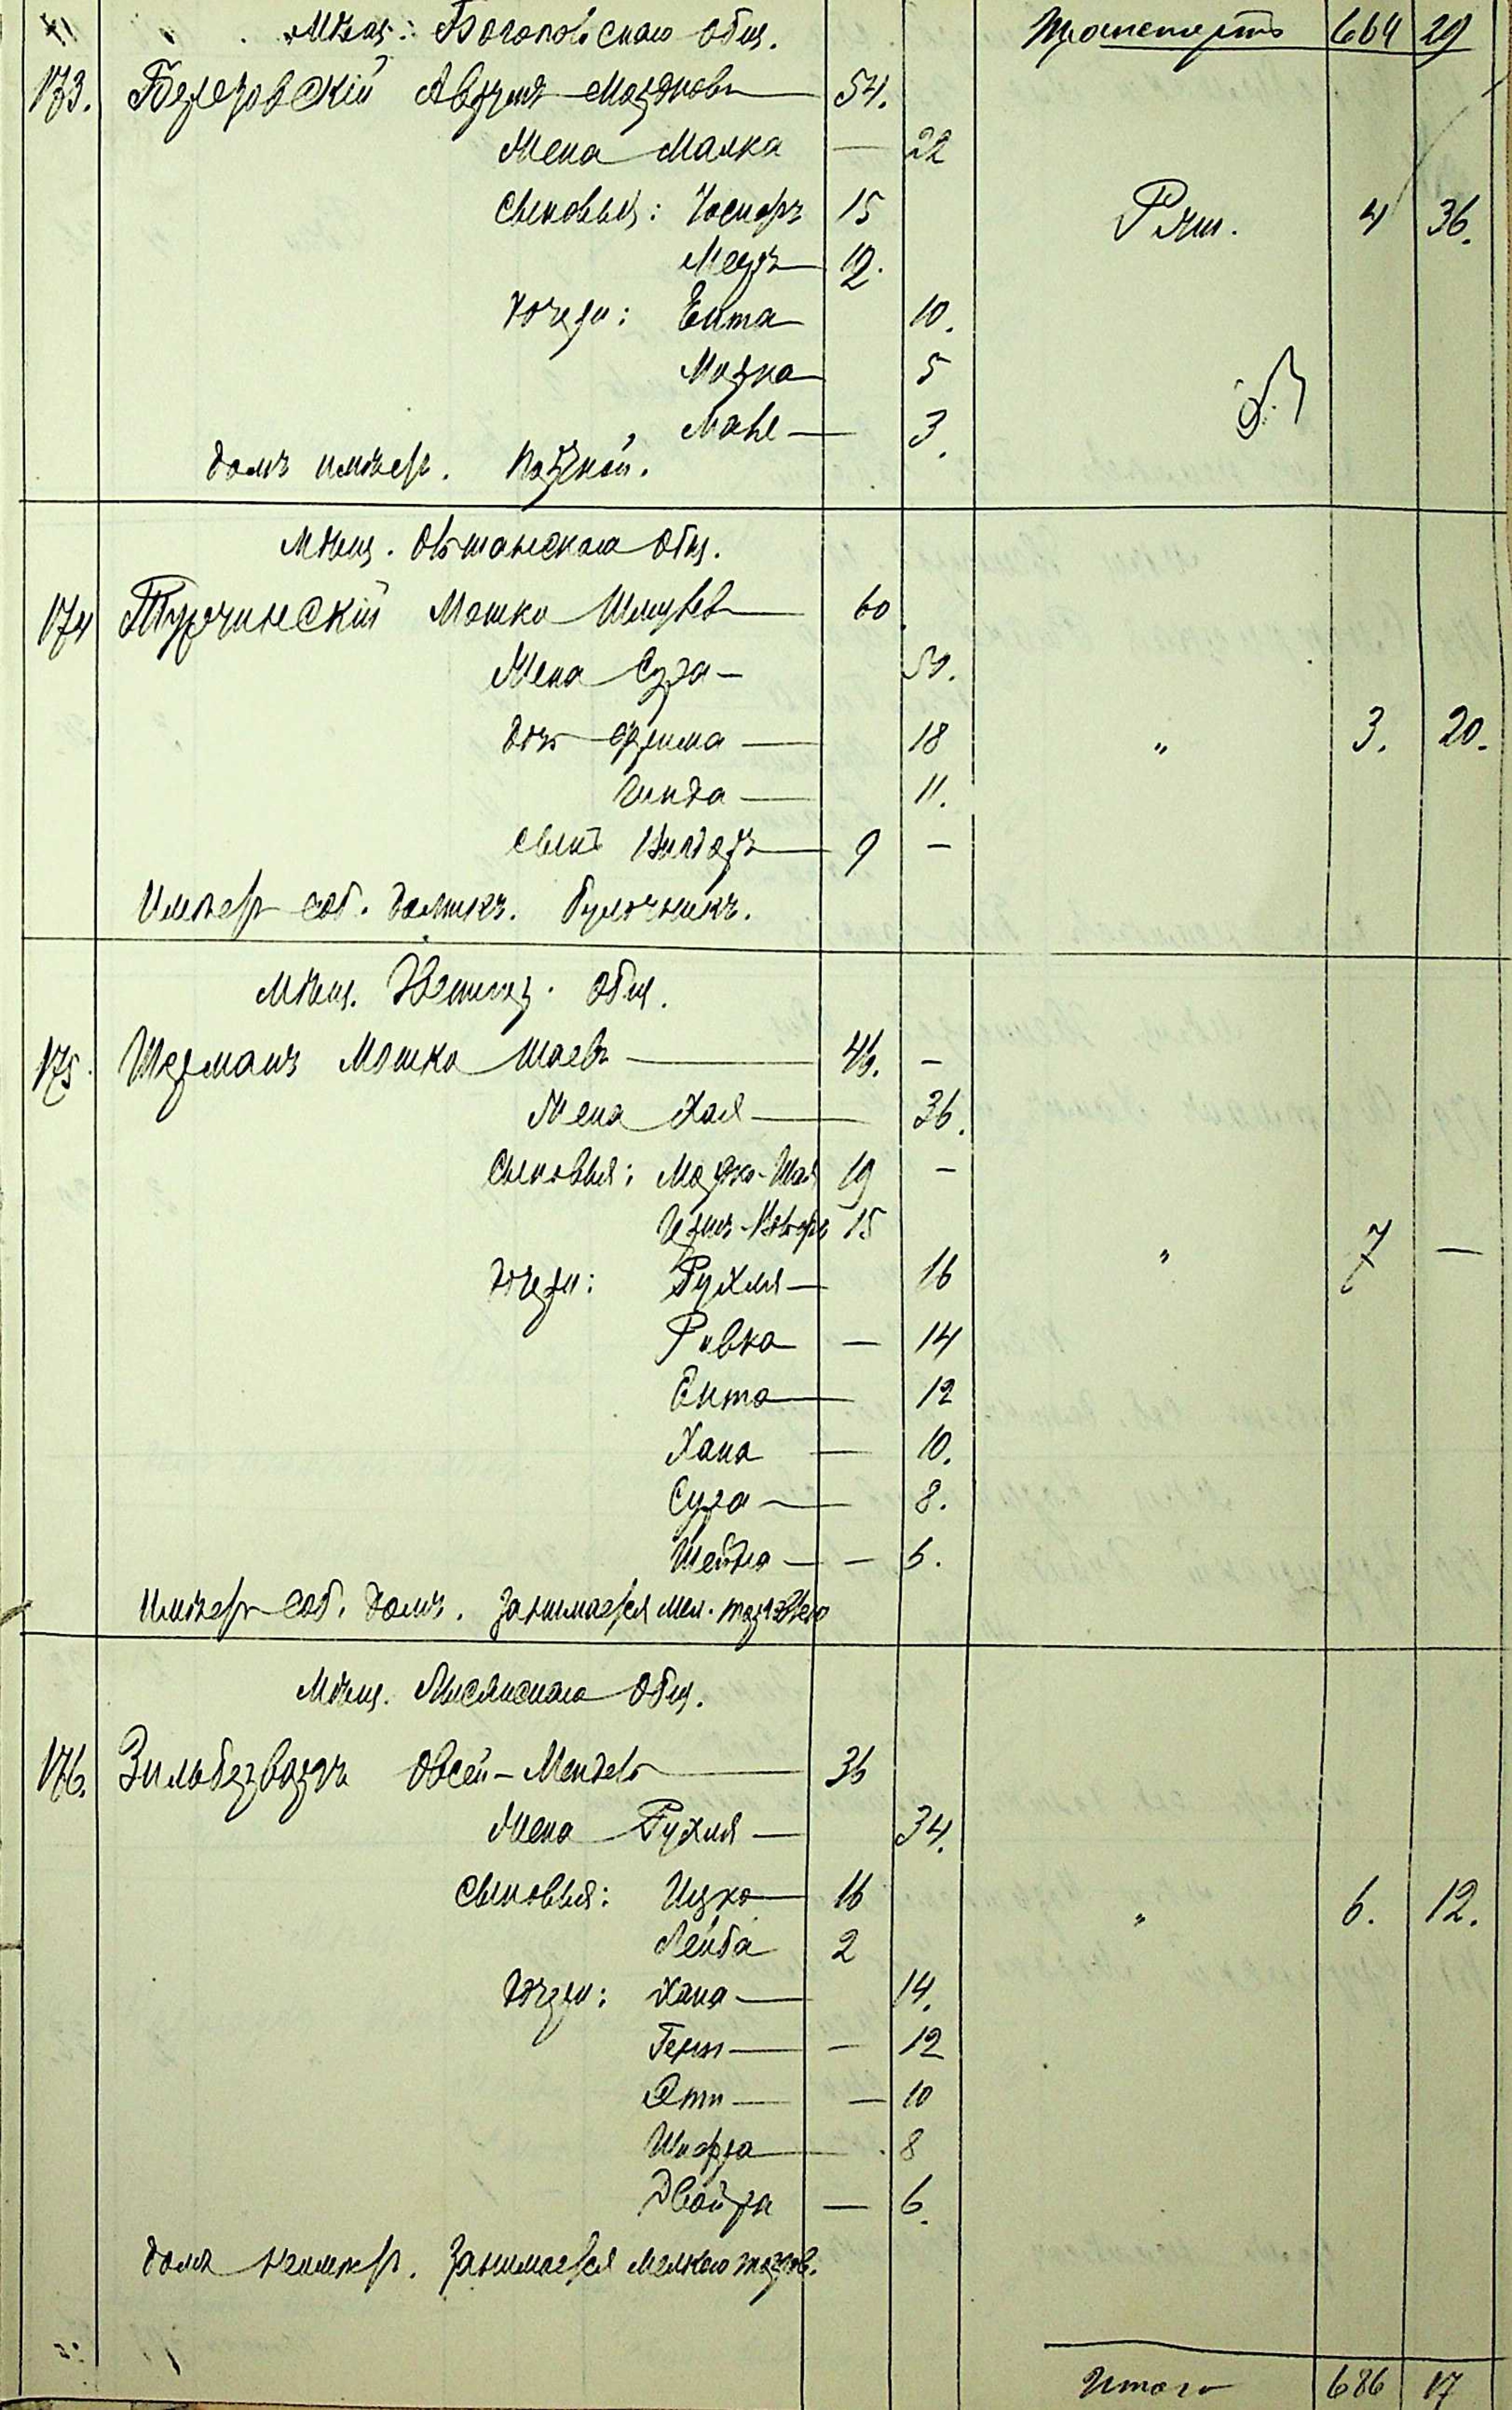 Мѣщ: Богопольскаго общ. Транспортъ 664 29
173. Березовскій Аврумъ Мордковъ 54.
Жена Малка — 22
Сыновья: Іосифъ 15 4 36.
Мееръ 12.
Дочери: Ента 10.
5
3.
Домъ имѣетъ.
Мѣщ. Ольшанскаго общ.
174 Турчинскій Мошко Шмулев 60
Жена Сура —
Дочь Фрима — 18 „ 3. 20.
Гинда — 11.
Сынъ 9 —
Имѣетъ соб. домикъ. Булочникъ.
Мѣщ. общ.
175. Шерманъ Мошко Шаевъ 46. —
Жена Хая — 36.
Сыновья: Мордко-Шая 19 —
15
Дочери: Рухля — 16 „ 7 —
Ривка — 14
Ента — 12
Хана — 10.
Сура — 8.
Шейдля — — 6.
Имѣетъ соб. домъ. Занимается мел. торговлею
Мѣщ. Лисянскаго общ.
176. Зильберваргъ Овсей-Мендель 36
Жена Рухля — 34.
Сыновья: Ицко 16 „ 6. 12.
Лейба 2
Дочери: Хана — 14.
Геня — — 12
Эти — — 10
Шифра 8
Двойра — 6.
Домъ неимѣетъ. Занимается мелкою торгов.
Итого 686 17